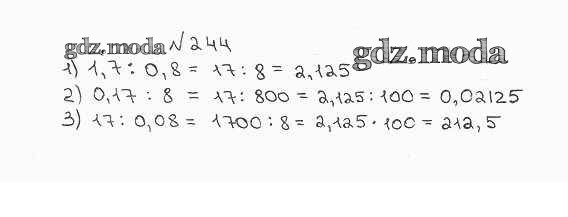 gdz.moda № 244 gdz.moda
1) 1,7 : 0,8 = 17 : 8 = 2,125
2) 0,17 : 8 = 17 : 800 = 2,125 : 100 = 0,02125
3) 17 : 0,08 = 1700 : 8 = 2,125 · 100 = 212,5